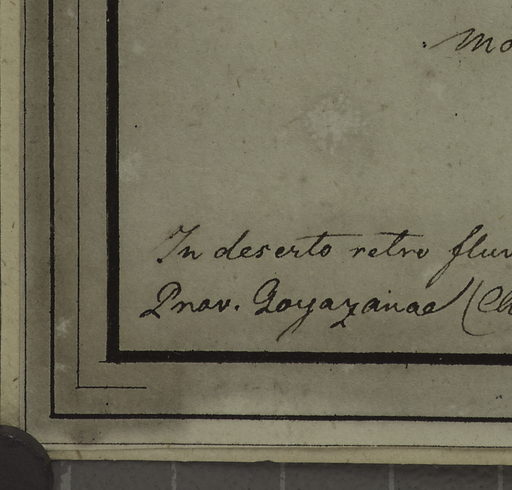 Mo
In deserto retro flu
Prov. Goyazanae (Ch